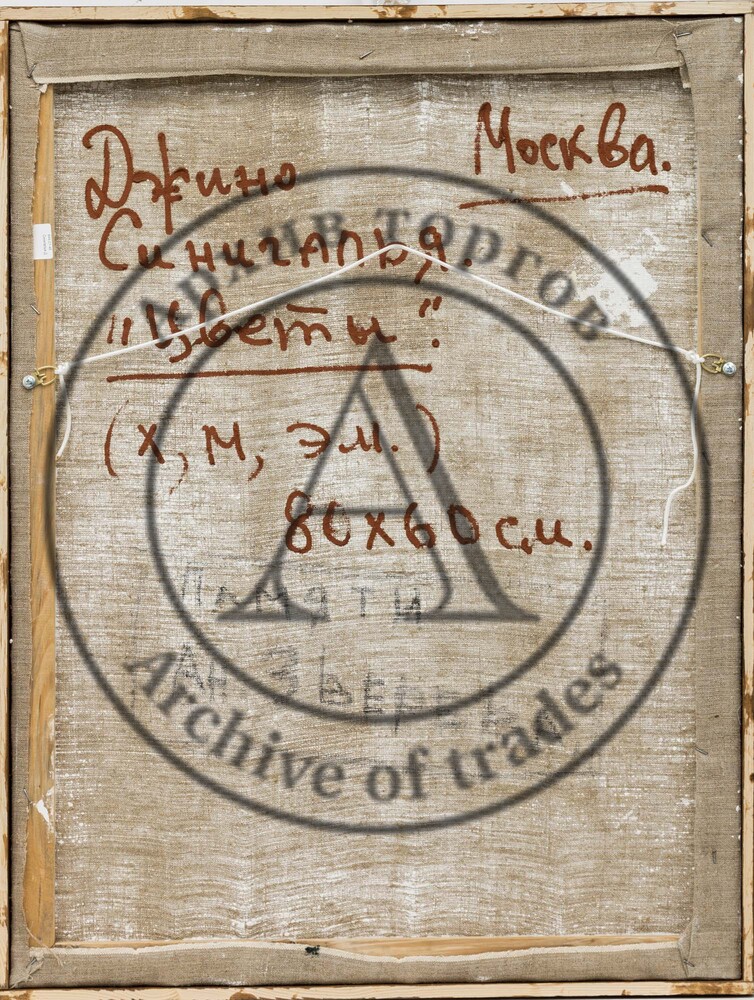 Джино
Москва.
Синигалья.
"Цветы".
(х, м, эм.)
80х60 см.
Памяти
Ан Зверев
Архив торгов
Archive of trades